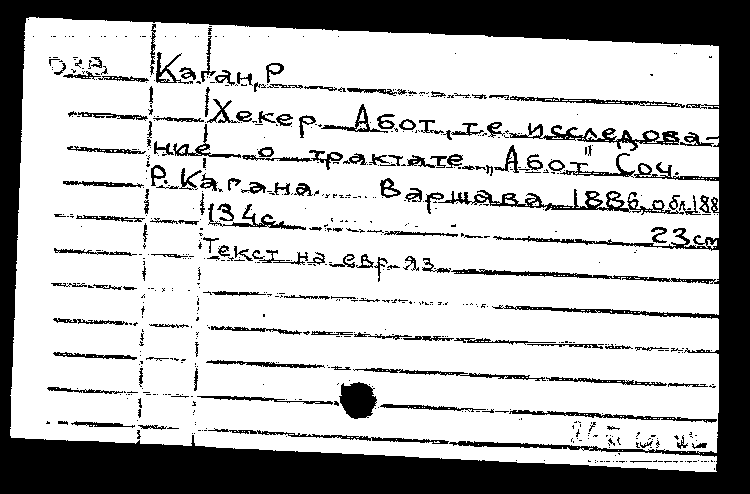 Каган, Р
Хекер Абот, т.е. исследова-
ние о трактате „Абот" Соч.
Р. Кагана. Варшава, 1886, обл.188
134с. 23cm
Текст на евр яз